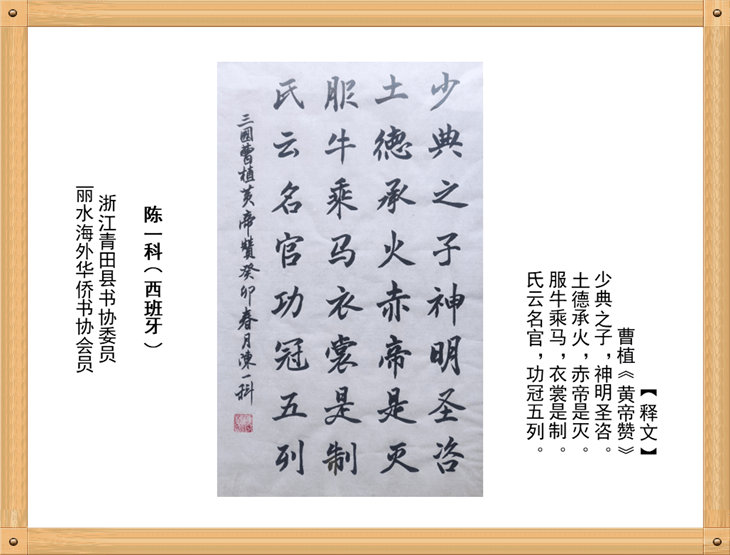 【释文】
曹植《黄帝赞》
少典之子，神明圣咨。
土德承火，赤帝是灭。
服牛乘马，衣裳是制。
氏云名官，功冠五列。
少典之子神明圣咨
土德承火赤帝是灭
服牛乘马衣裳是制
氏云名官功冠五列
三國曹植黄帝贊癸卯春月陳一科
陈一科（西班牙）
浙江青田县书协委员
丽水海外华侨书协会员